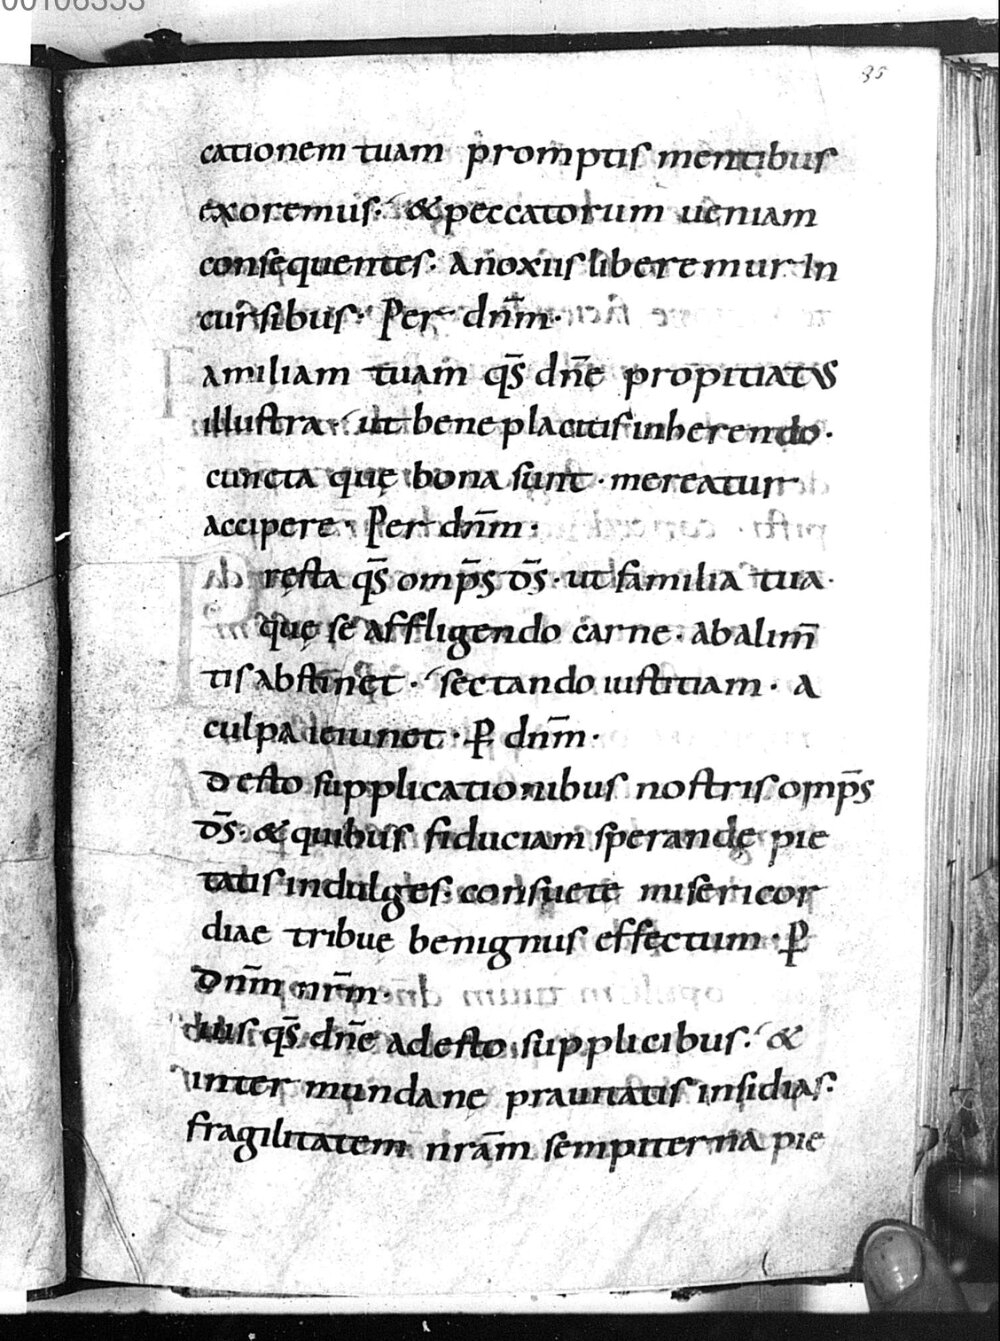 00106353
85
cationem tuam promptis mentibus
exoremus: & peccatorum ueniam
consequentes. Anoxiis liberemur In
cursibus: Per dn̄m.
Familiam tuam qs̄ dn̄e propitiatus
illustra. ut bene placitis inherendo.
cuncta quę bona sunt. mereatur
accipere. Per dn̄m.
Pręsta qs̄ omp̄s ds̄. ut familia tua.
quę se affligendo carne. ab alim̄
tis abstinet. sectando iustitiam. a
culpa ieiunet. P̄ dn̄m.
Adesto supplicationibus nostris omp̄s
ds̄. & quibus fiduciam sperandę pie
tatis indulges. consuete misericor
diae tribue benignus effectum. P̄
dn̄m nr̄m.
qs̄ dn̄e adesto supplicibus. &
inter mundane prauitatis insidias.
fragilitatem nrām sempiterna pie